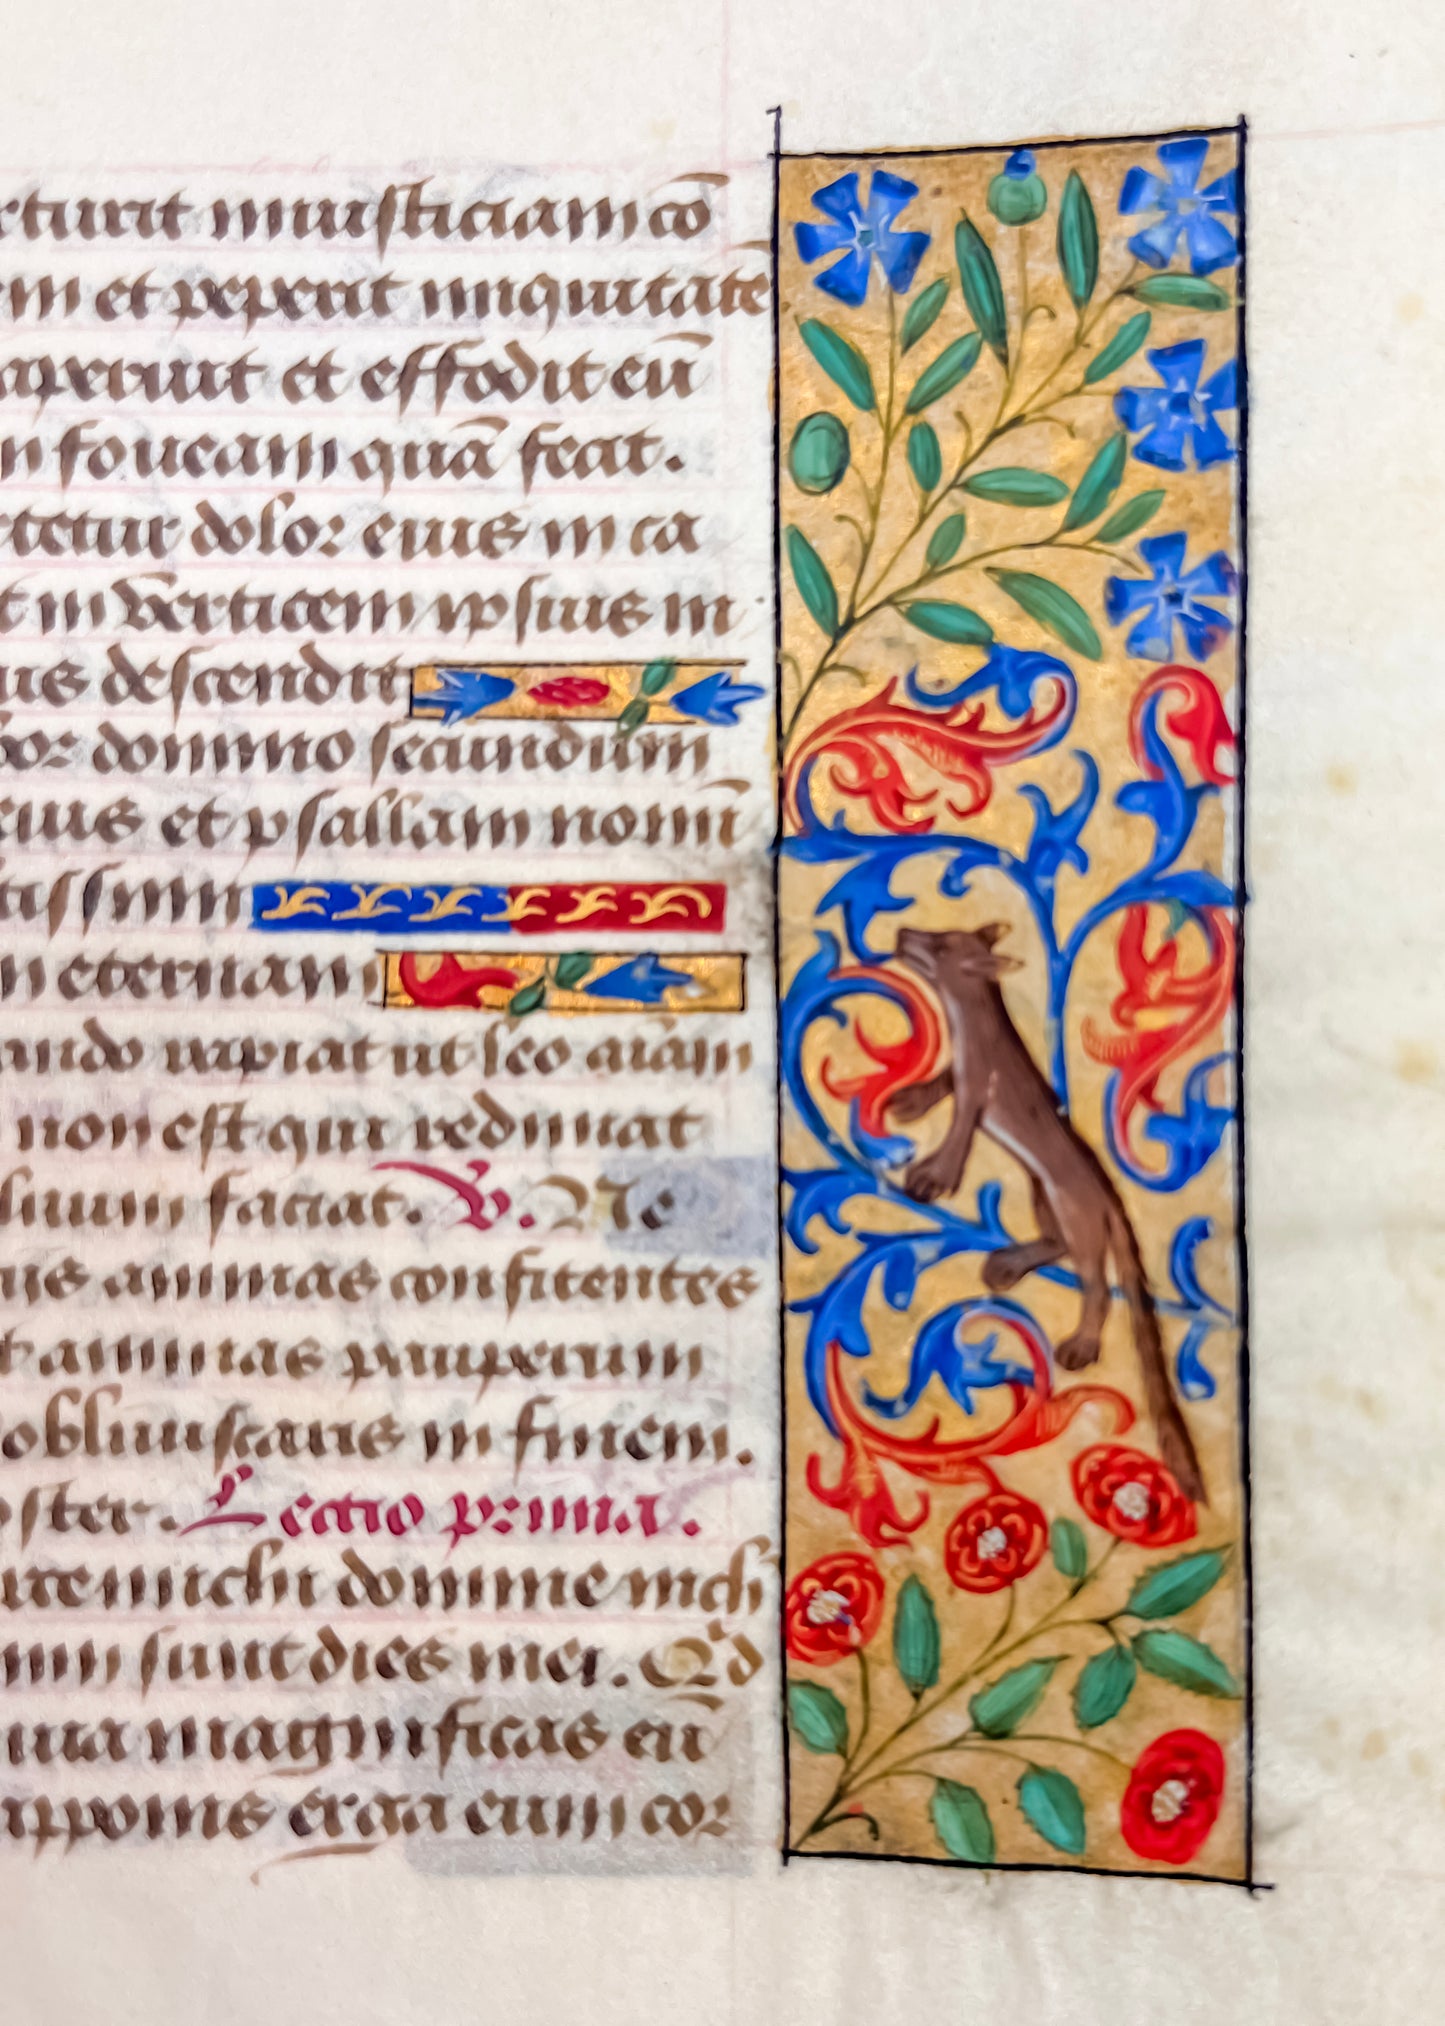 rturit iniusticiam cō
em et peperit iniquitatē
aperuit et effodit eū
n foueam quā fecit.
rtetur dolor eius in ca
t in verticem ipsius in
us descendit
bor domino secundum
eius et psallam nomī
tissimi
n eternam
ando rapiat ut leo aīam
non est qui redimat
luum faciat. V. Ne
us animas confitentes
t animas pauperum
obliuiscaris in finem.
oster. Lectio prima.
arce michi domine nich
nim sunt dies mei. Qd
uia magnificas eū
apponis erga eum cor